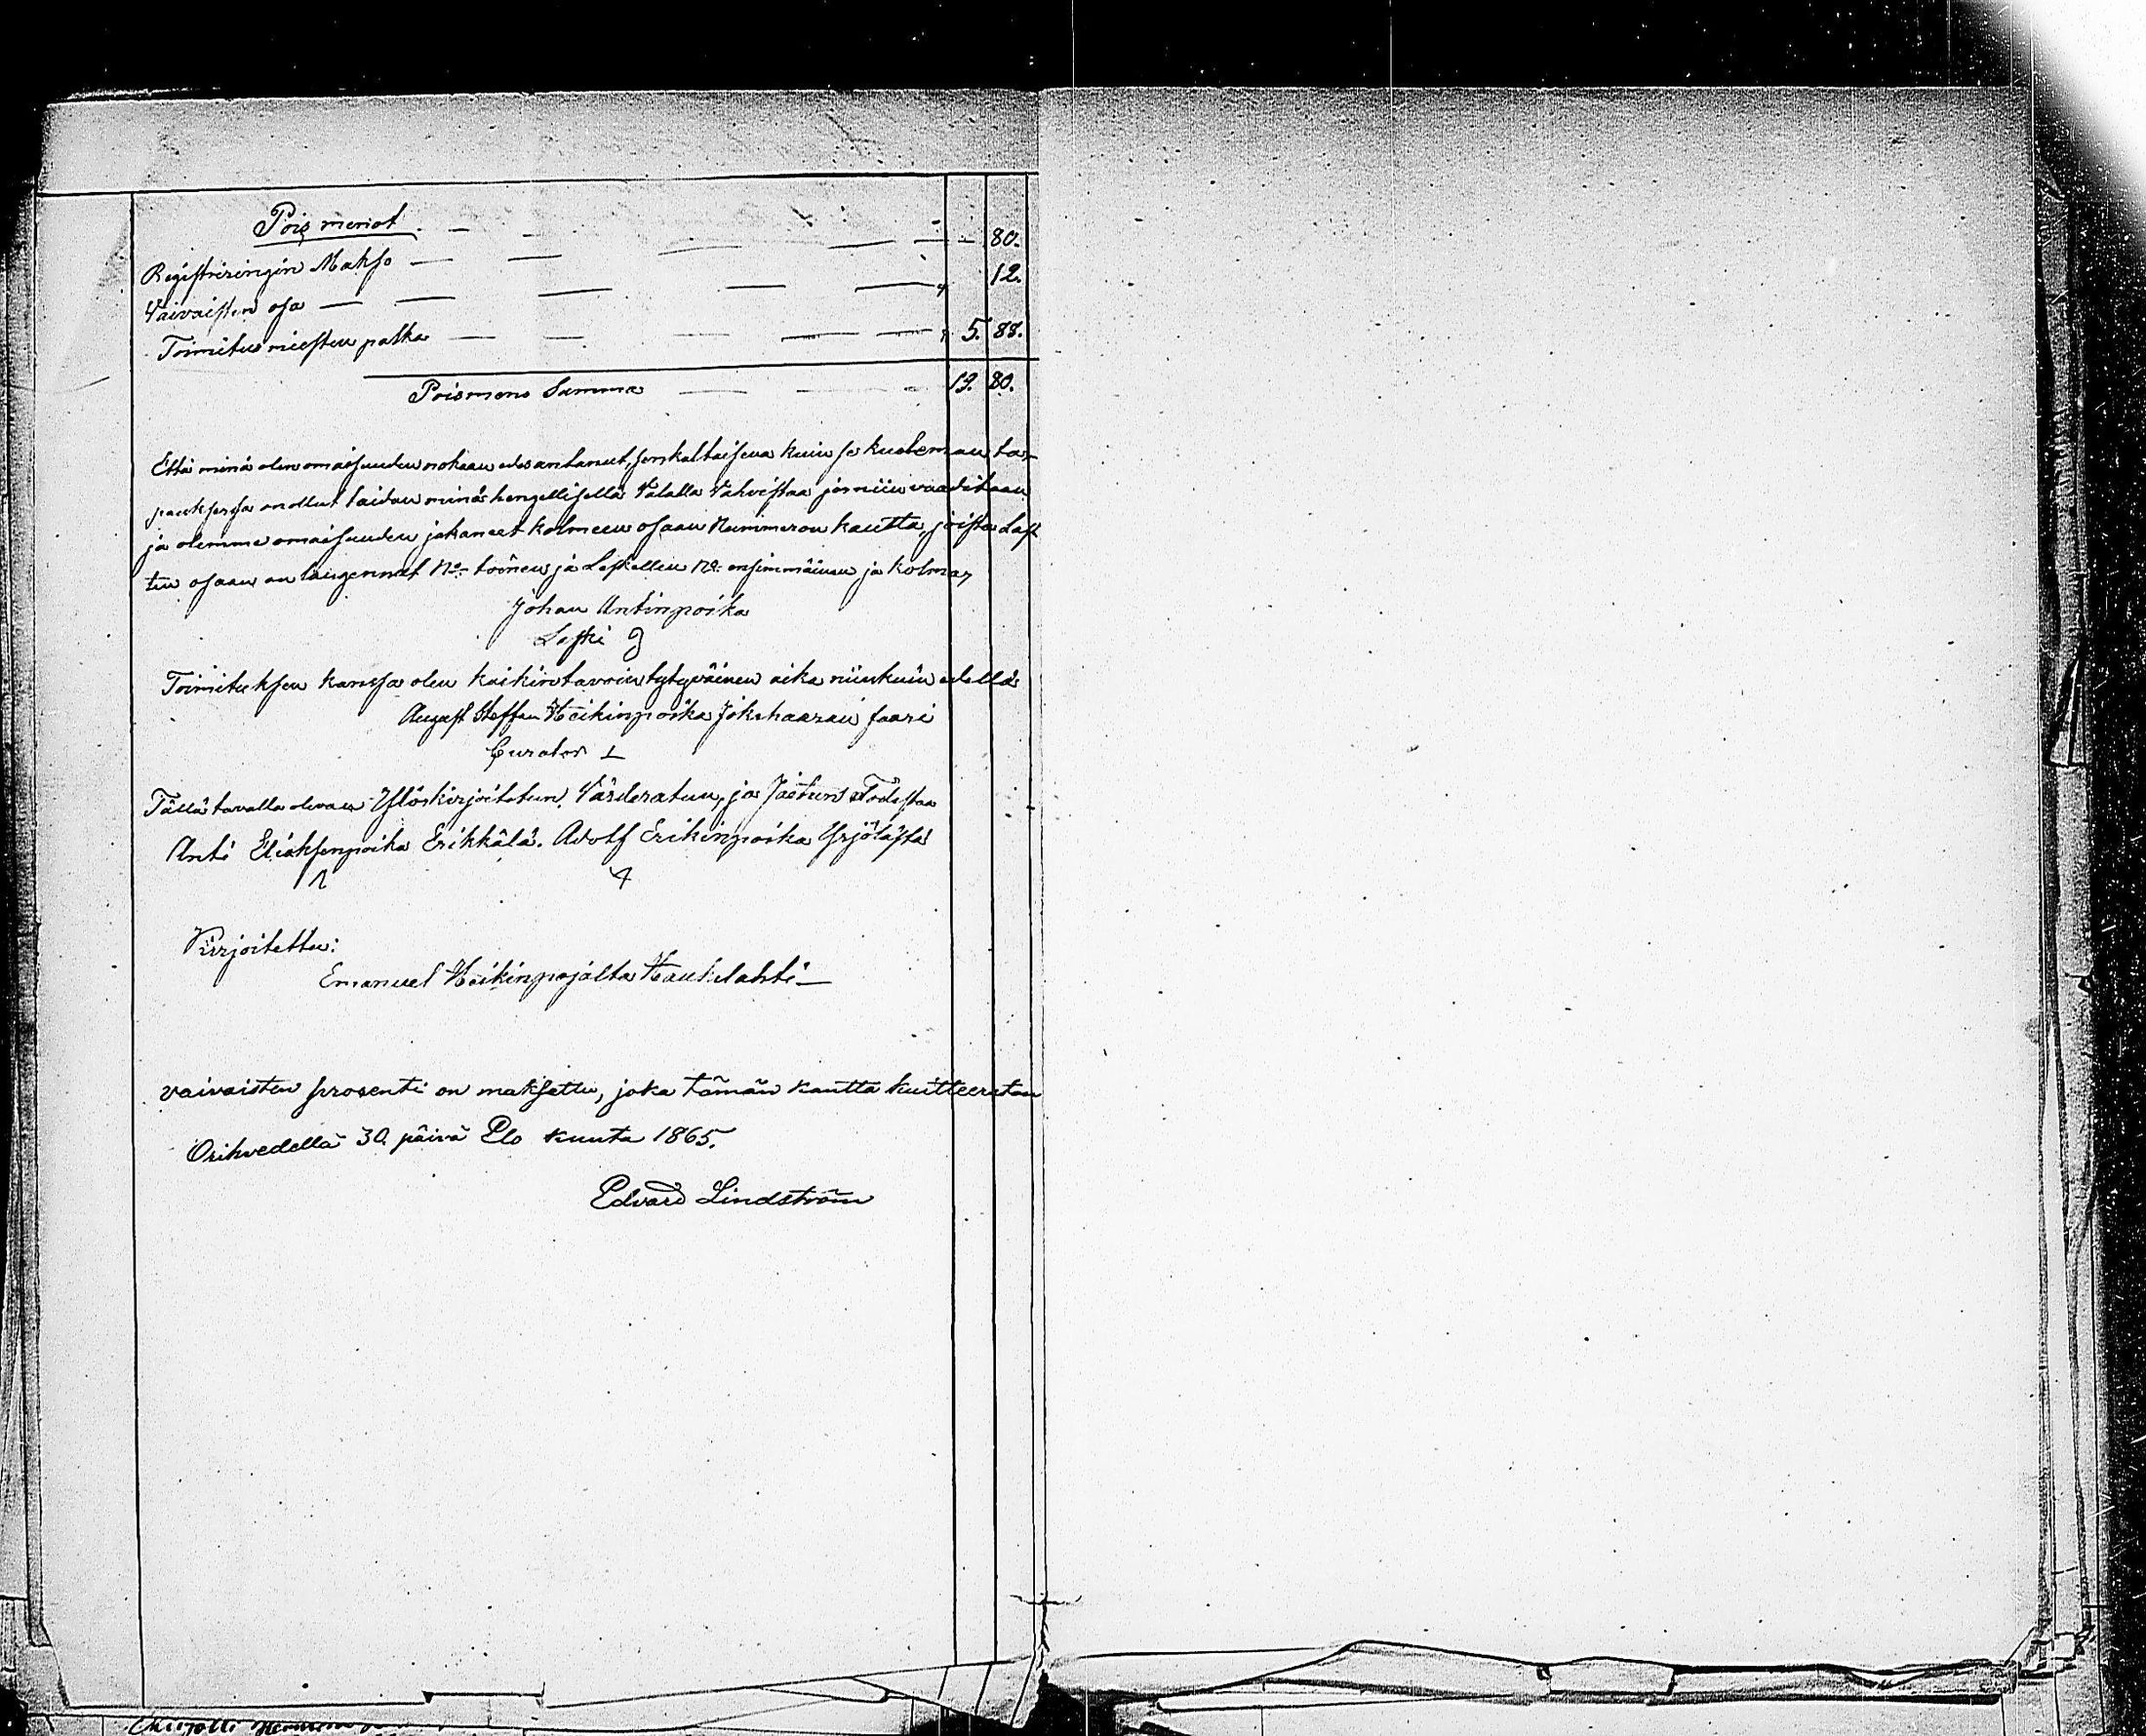 Pois menot 80.
Registreringin Makso 12.
Vaivaisten osa
Toimitus miesten palka 5. 88.
Poismeno Summa 19. 80.
Että minä olen omaisuuden oikean edesantanut, senkaltaisena kuin se kuoleman ta-
pauksessa on ollut taidan minä hengellisellä Valalla Vahvistaa jos niin vaaditaan
ja olemme omaisuuden jakaneet kolmeen osaan Nummeron kautta, joista Las
ten osaan on langennut No toinen ja Leskellen No ensimmäinen ja kolmas
Johan Antinpoika
Leski
Toimituksen kanssa olen kaikin tavoin tytyväinen aika niinkuin edellä
August Steffan Heikinpoika Jokihaaran saari
Curator
Tällä tavalla olevan Ylöskirjoitetun, Värderatun, ja Jaetun Todistaa
Anti Eliaksenpoika Erikkälä. Adolf Erikinpoika Yrjölästä
Kirjoitettu:
Emanuel Heikinpojalta Haukilahti
vaivaisten prosenti on maksettu, joka tämän kautta kuitteeratan
Orihvedellä 30. päivä Elo kuuta 1865.
Edvard Lindström